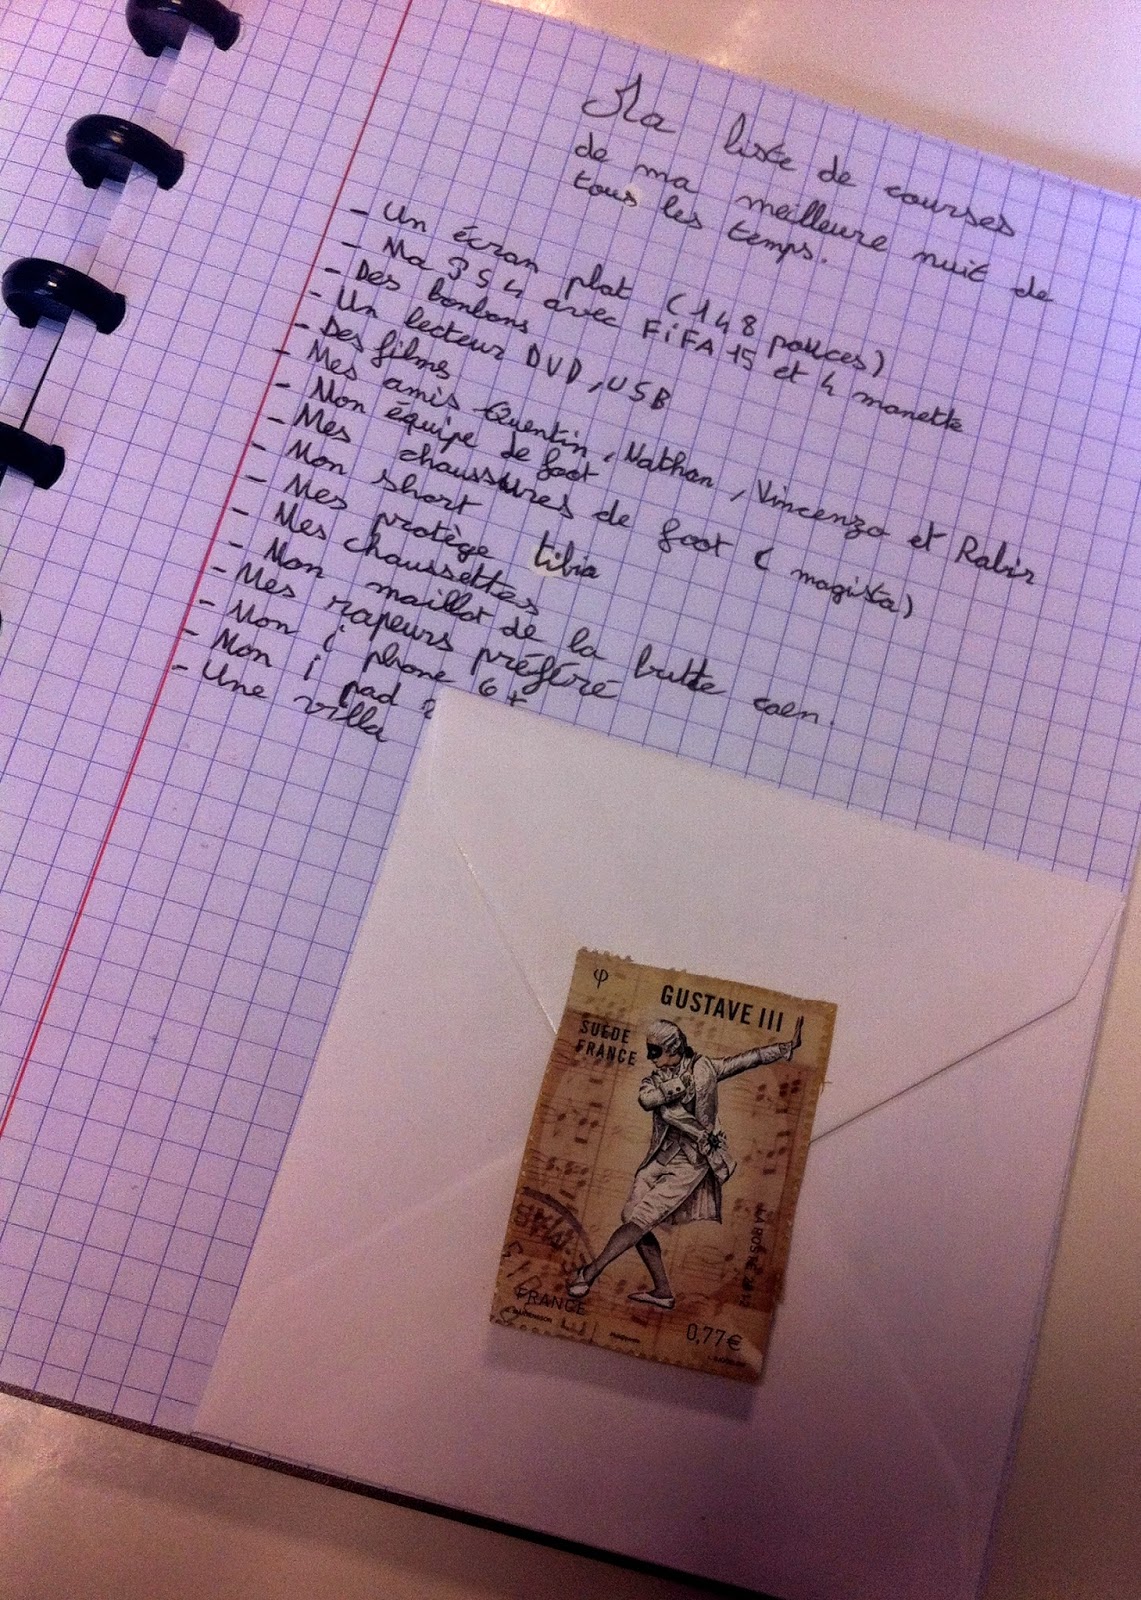 Ma liste de courses
de ma meilleure nuit de
tous les temps.
- Un écran plat (148 pouces)
- Ma PS4 avec FiFA 15 et 4 manette
- Des bonbons
- Un lecteur DVD, USB
- Des films
- Mes amis Quentin, Nathan, Vincenzo et Rabir
- Mon équipe de foot
- Mes chaussures de foot (magista)
- Mon short
- Mes protège tibia
- Mes chaussettes
- Mon maillot de la butte caen.
- Mes rapeurs préféré
- Mon i phone 6+
- Mon i pad 2
- Une villa
GUSTAVE III
SUÈDE
FRANCE
LA POSTE 2012
FRANCE
0,77€